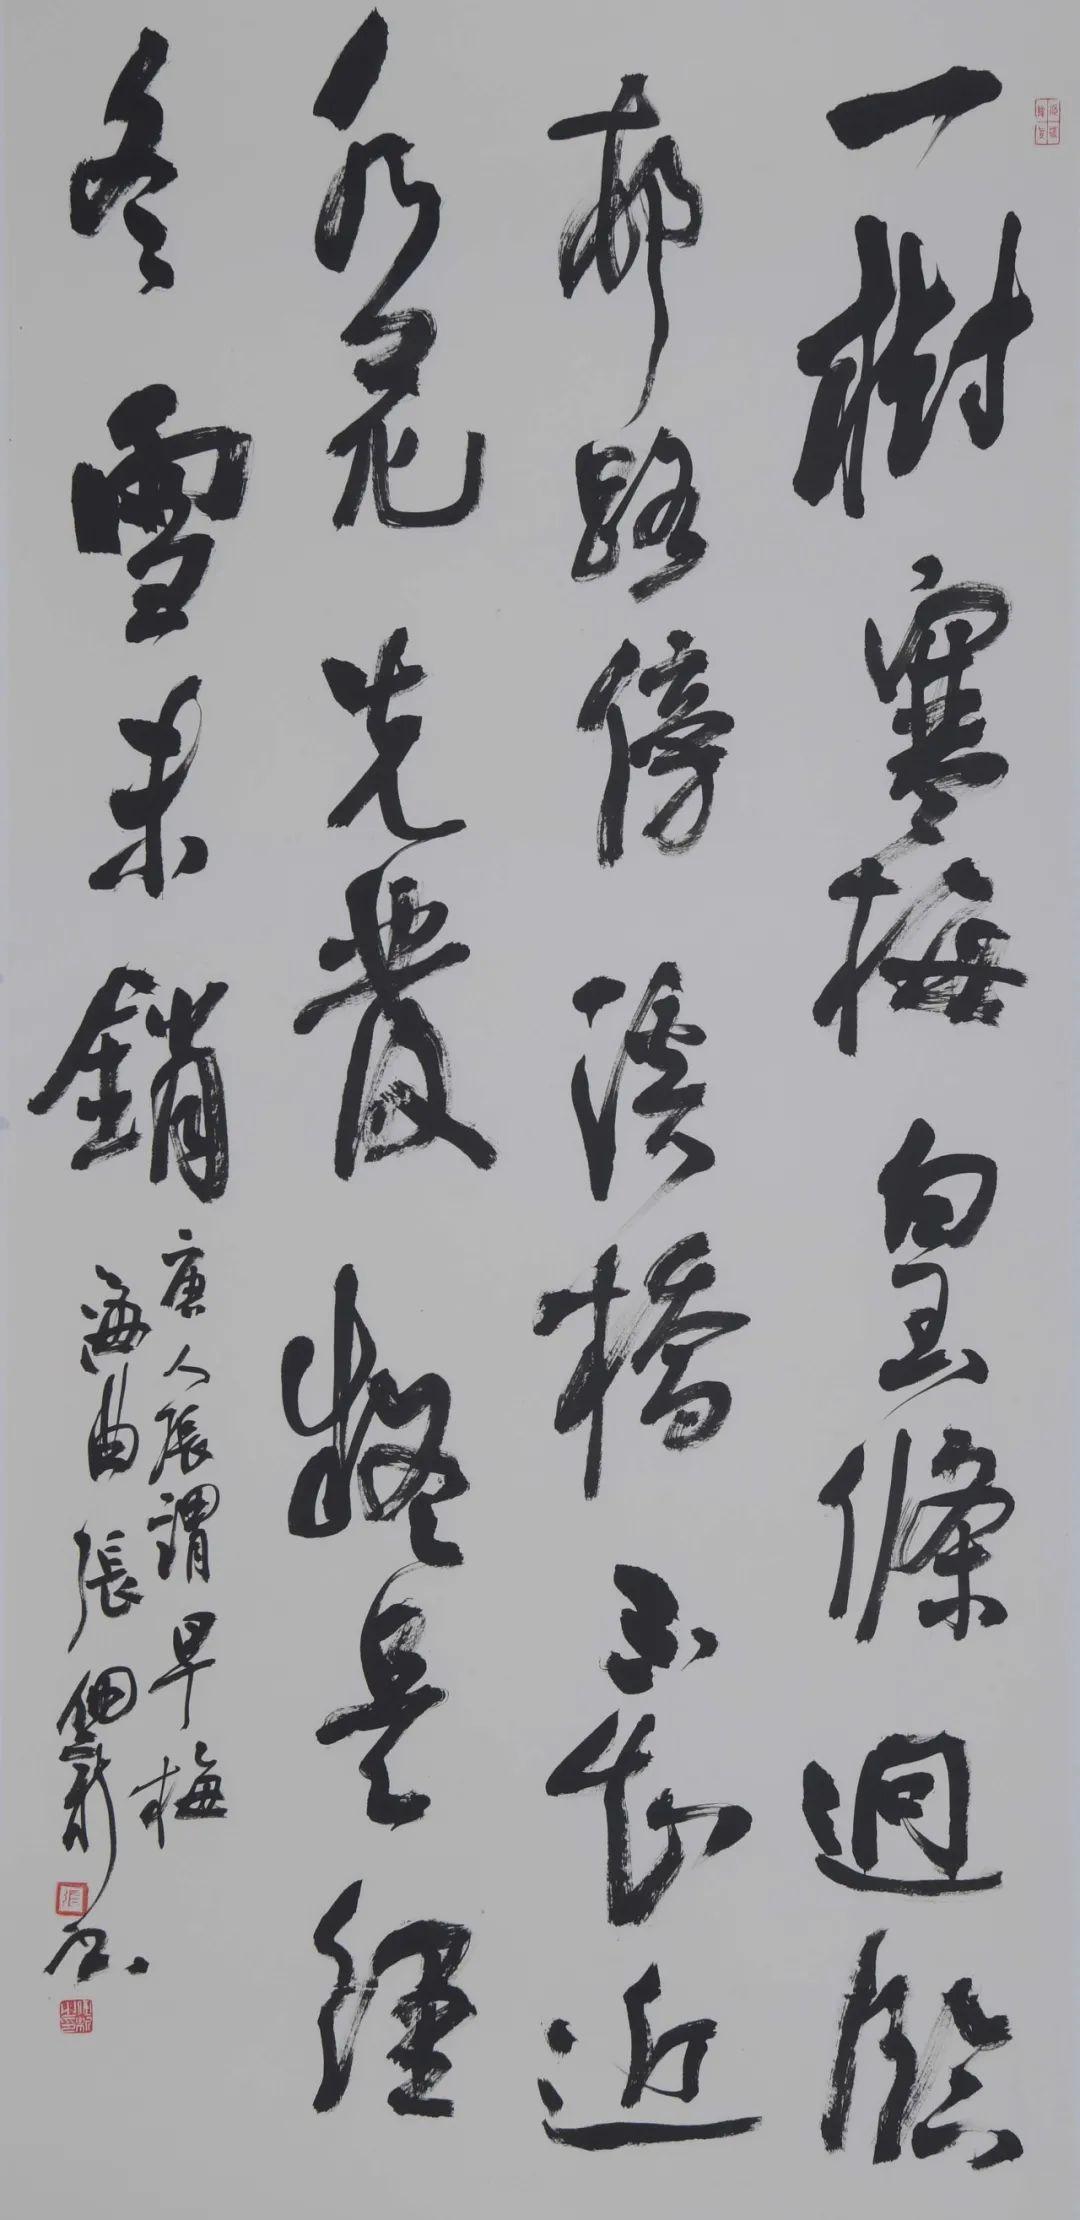 一樹寒梅白玉條迥臨
邨路傍溪橋不知近
水花先發疑是經
冬雪未銷
唐人張謂早梅
海曲張書